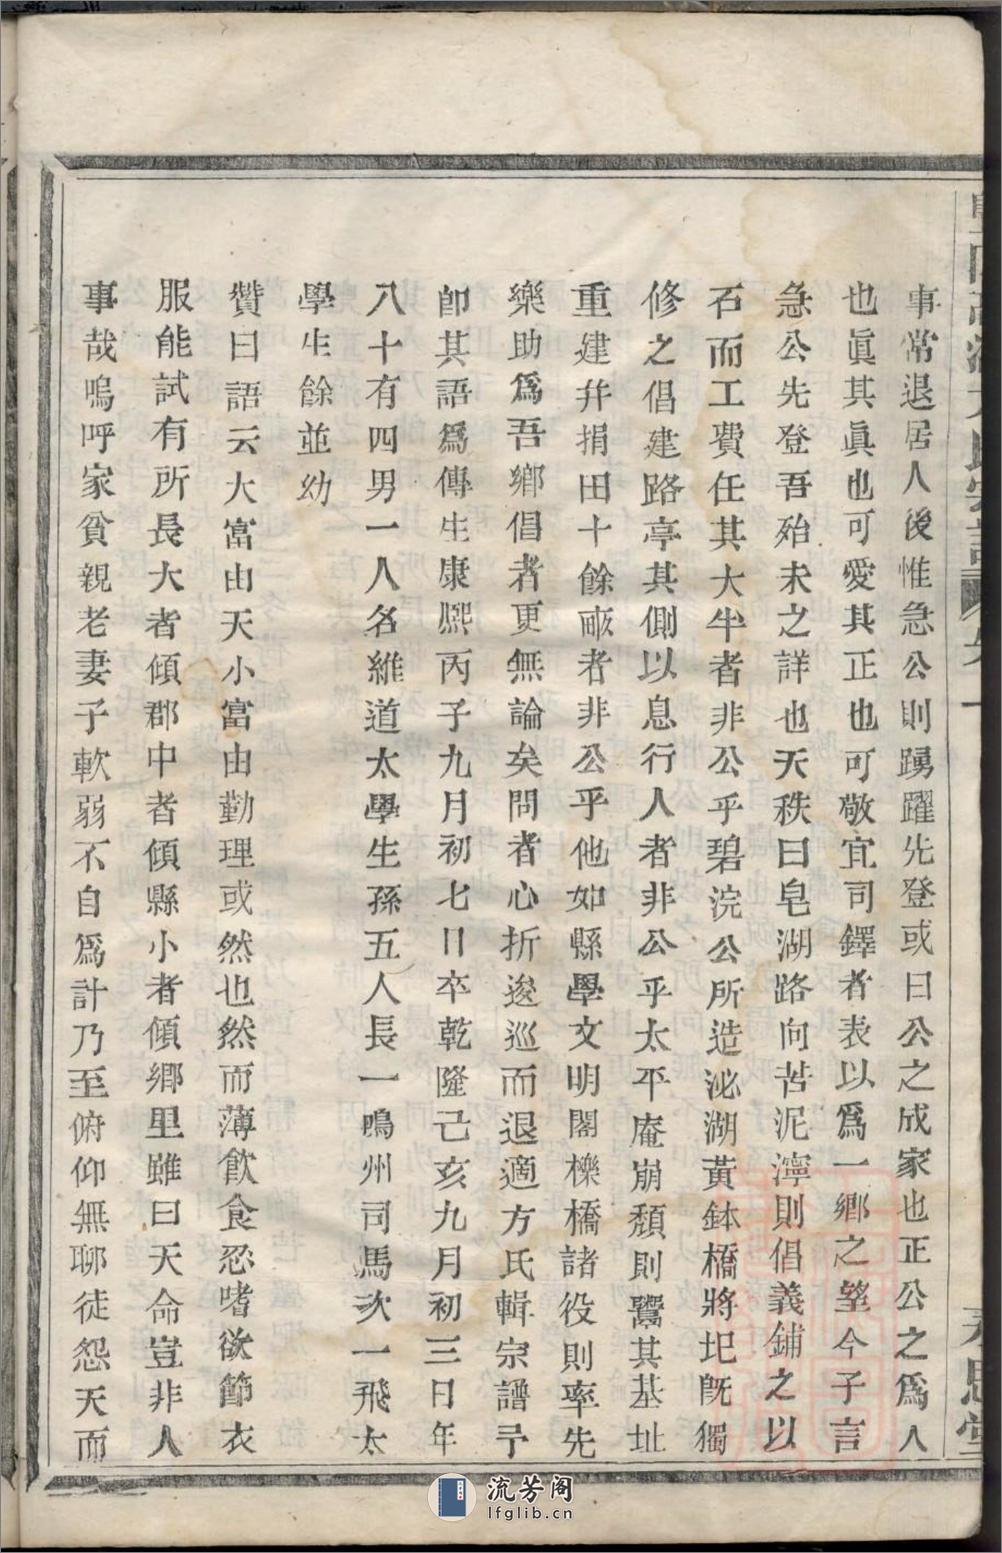 事常退居人後惟急公則踴躍先登或曰公之成家也正公之爲人
也眞其眞也可愛其正也可敬宜司鐸者表以爲一鄉之望今子言
急公先登吾殆未之詳也天秩曰皂湖路向苦泥濘則倡義鋪之以
石而工費任其大半者非公乎碧浣公所造泌湖黃鉢橋將圯旣獨
修之倡建路亭其側以息行人者非公乎太平庵崩頹則鬻其基址
重建幷捐田十餘畝者非公乎他如縣學文明閣櫟橋諸役則率先
樂助爲吾鄉倡者更無論矣問者心折逡巡而退適方氏輯宗譜予
卽其語爲傳生康熙丙子九月初七日卒乾隆己亥九月初三日年
八十有四男一人名維道太學生孫五人長一鳴州司馬次一飛太
學生餘並幼
贊曰語云大富由天小富由勤理或然也然而薄飲食忍嗜欲節衣
服能試有所長大者傾郡中者傾縣小者傾鄉里雖曰天命豈非人
事哉嗚呼家貧親老妻子軟弱不自爲計乃至俯仰無聊徒怨天而
流芳阁
lfglib.cn